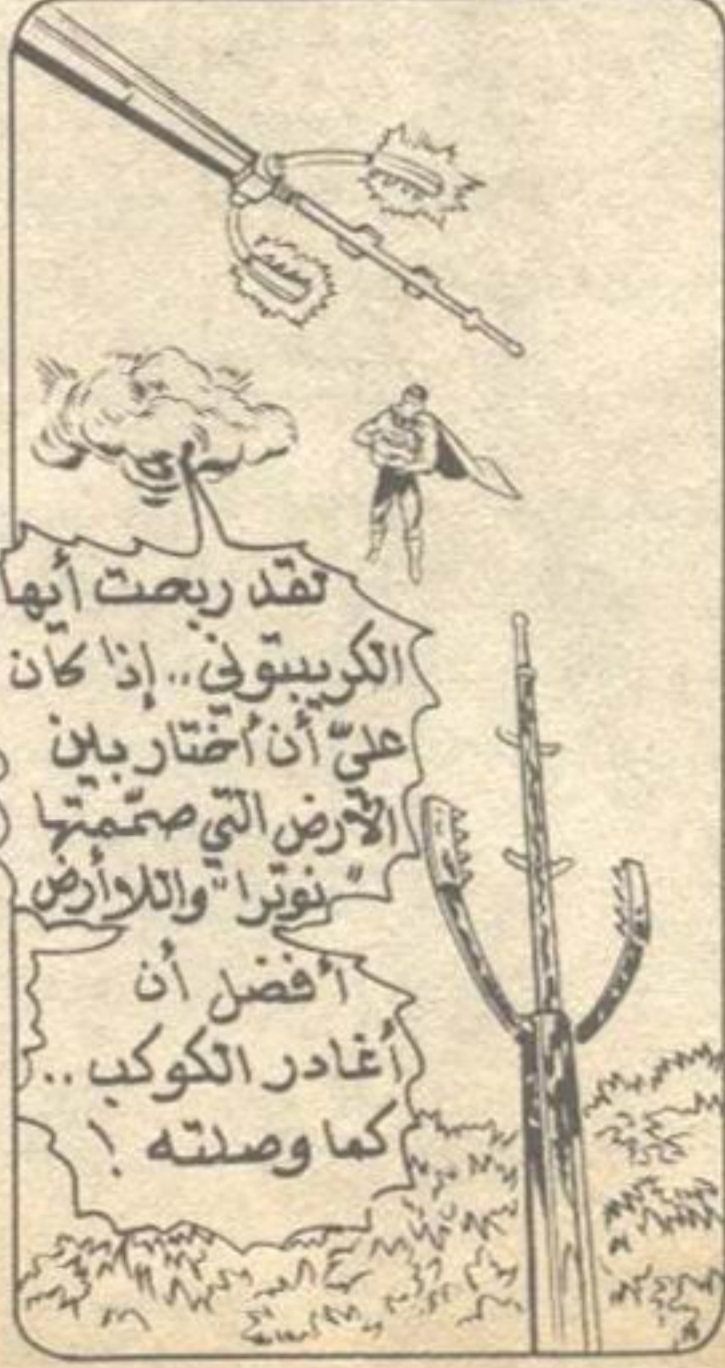 لقد ربحت أيها
الكريبتوني.. إذا كان
عليّ أن أختار بين
الأرض التي صمّمتها
"نوترا" واللاأرض
أفضل أن
أغادر الكوكب..
كما وصلته !